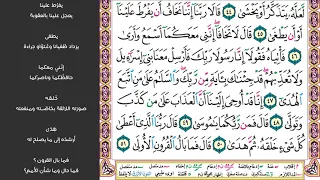 لَّعَلَّهُۥ يَتَذَكَّرُ أَوْ يَخْشَىٰ ٤٤ قَالَا رَبَّنَآ إِنَّنَا نَخَافُ أَن يَفْرُطَ عَلَيْنَآ
أَوْ أَن يَطْغَىٰ ٤٥ قَالَ لَا تَخَافَآ إِنَّنِى مَعَكُمَآ أَسْمَعُ وَأَرَىٰ
٤٦ فَأْتِيَاهُ فَقُولَآ إِنَّا رَسُولَا رَبِّكَ فَأَرْسِلْ مَعَنَا بَنِىٓ إِسْرَٰٓءِيلَ
وَلَا تُعَذِّبْهُمْ قَدْ جِئْنَٰكَ بِـَٔايَةٍ مِّن رَّبِّكَ وَٱلسَّلَٰمُ عَلَىٰ مَنِ ٱتَّبَعَ
ٱلْهُدَىٰٓ ٤٧ إِنَّا قَدْ أُوحِىَ إِلَيْنَآ أَنَّ ٱلْعَذَابَ عَلَىٰ مَن كَذَّبَ
وَتَوَلَّىٰ ٤٨ قَالَ فَمَن رَّبُّكُمَا يَٰمُوسَىٰ ٤٩ قَالَ رَبُّنَا ٱلَّذِىٓ أَعْطَىٰ
كُلَّ شَىْءٍ خَلْقَهُۥ ثُمَّ هَدَىٰ ٥٠ قَالَ فَمَا بَالُ ٱلْقُرُونِ ٱلْأُولَىٰ ٥١
يفرُط علينا
يعجل علينا بالعقوبة
يطغى
يزداد طغيانا وعُتوّا وجراءة
إنّني معكما
حافظكما وناصركما
خلقه
صورته اللائقة بخاصّته ومنفعته
هدى
أرشده إلى ما يصلح له
فما بال القرون ؟
فما حال وما شأن للأمم ؟